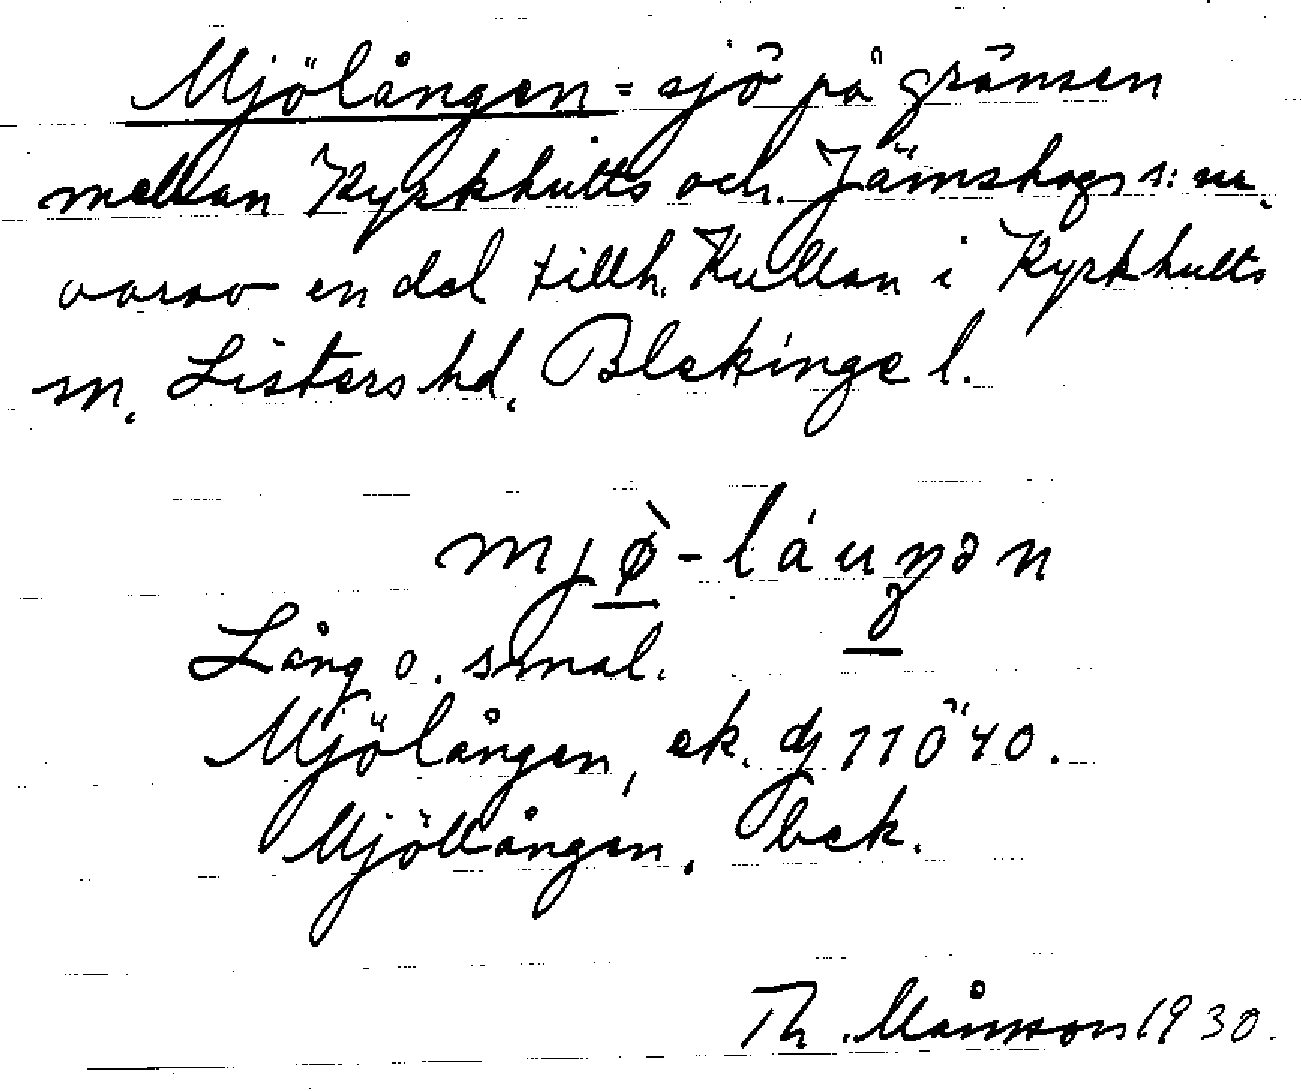 Mjölången = sjö på gränsen
mellan Kyrkhults och Jämshögs s:nr.
varav en del tillh. Kullan i Kyrkhults
sn. Listers hd, Blekinge l.
mjø̀-láuŋən
Lång o. smal.
Mjölången, ek. 11 ö 40.
Mjöllången, bek.
Th. Månsson 1930.